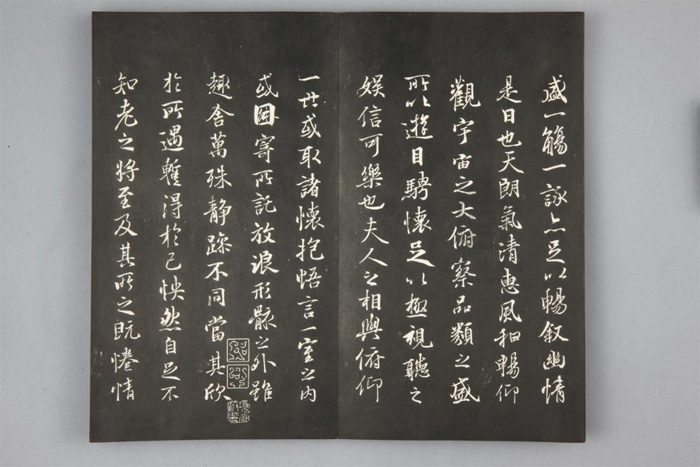 盛一觴一詠亦足以暢叙幽情
是日也天朗氣清惠風和暢仰
觀宇宙之大俯察品類之盛
所以遊目騁懷足以極視聽之
娛信可樂也夫人之相與俯仰
一世或取諸懷抱悟言一室之内
或因寄所託放浪形骸之外雖
趣舍萬殊静躁不同當其欣
於所遇蹔得於己怏然自足不
知老之將至及其所之既惓情